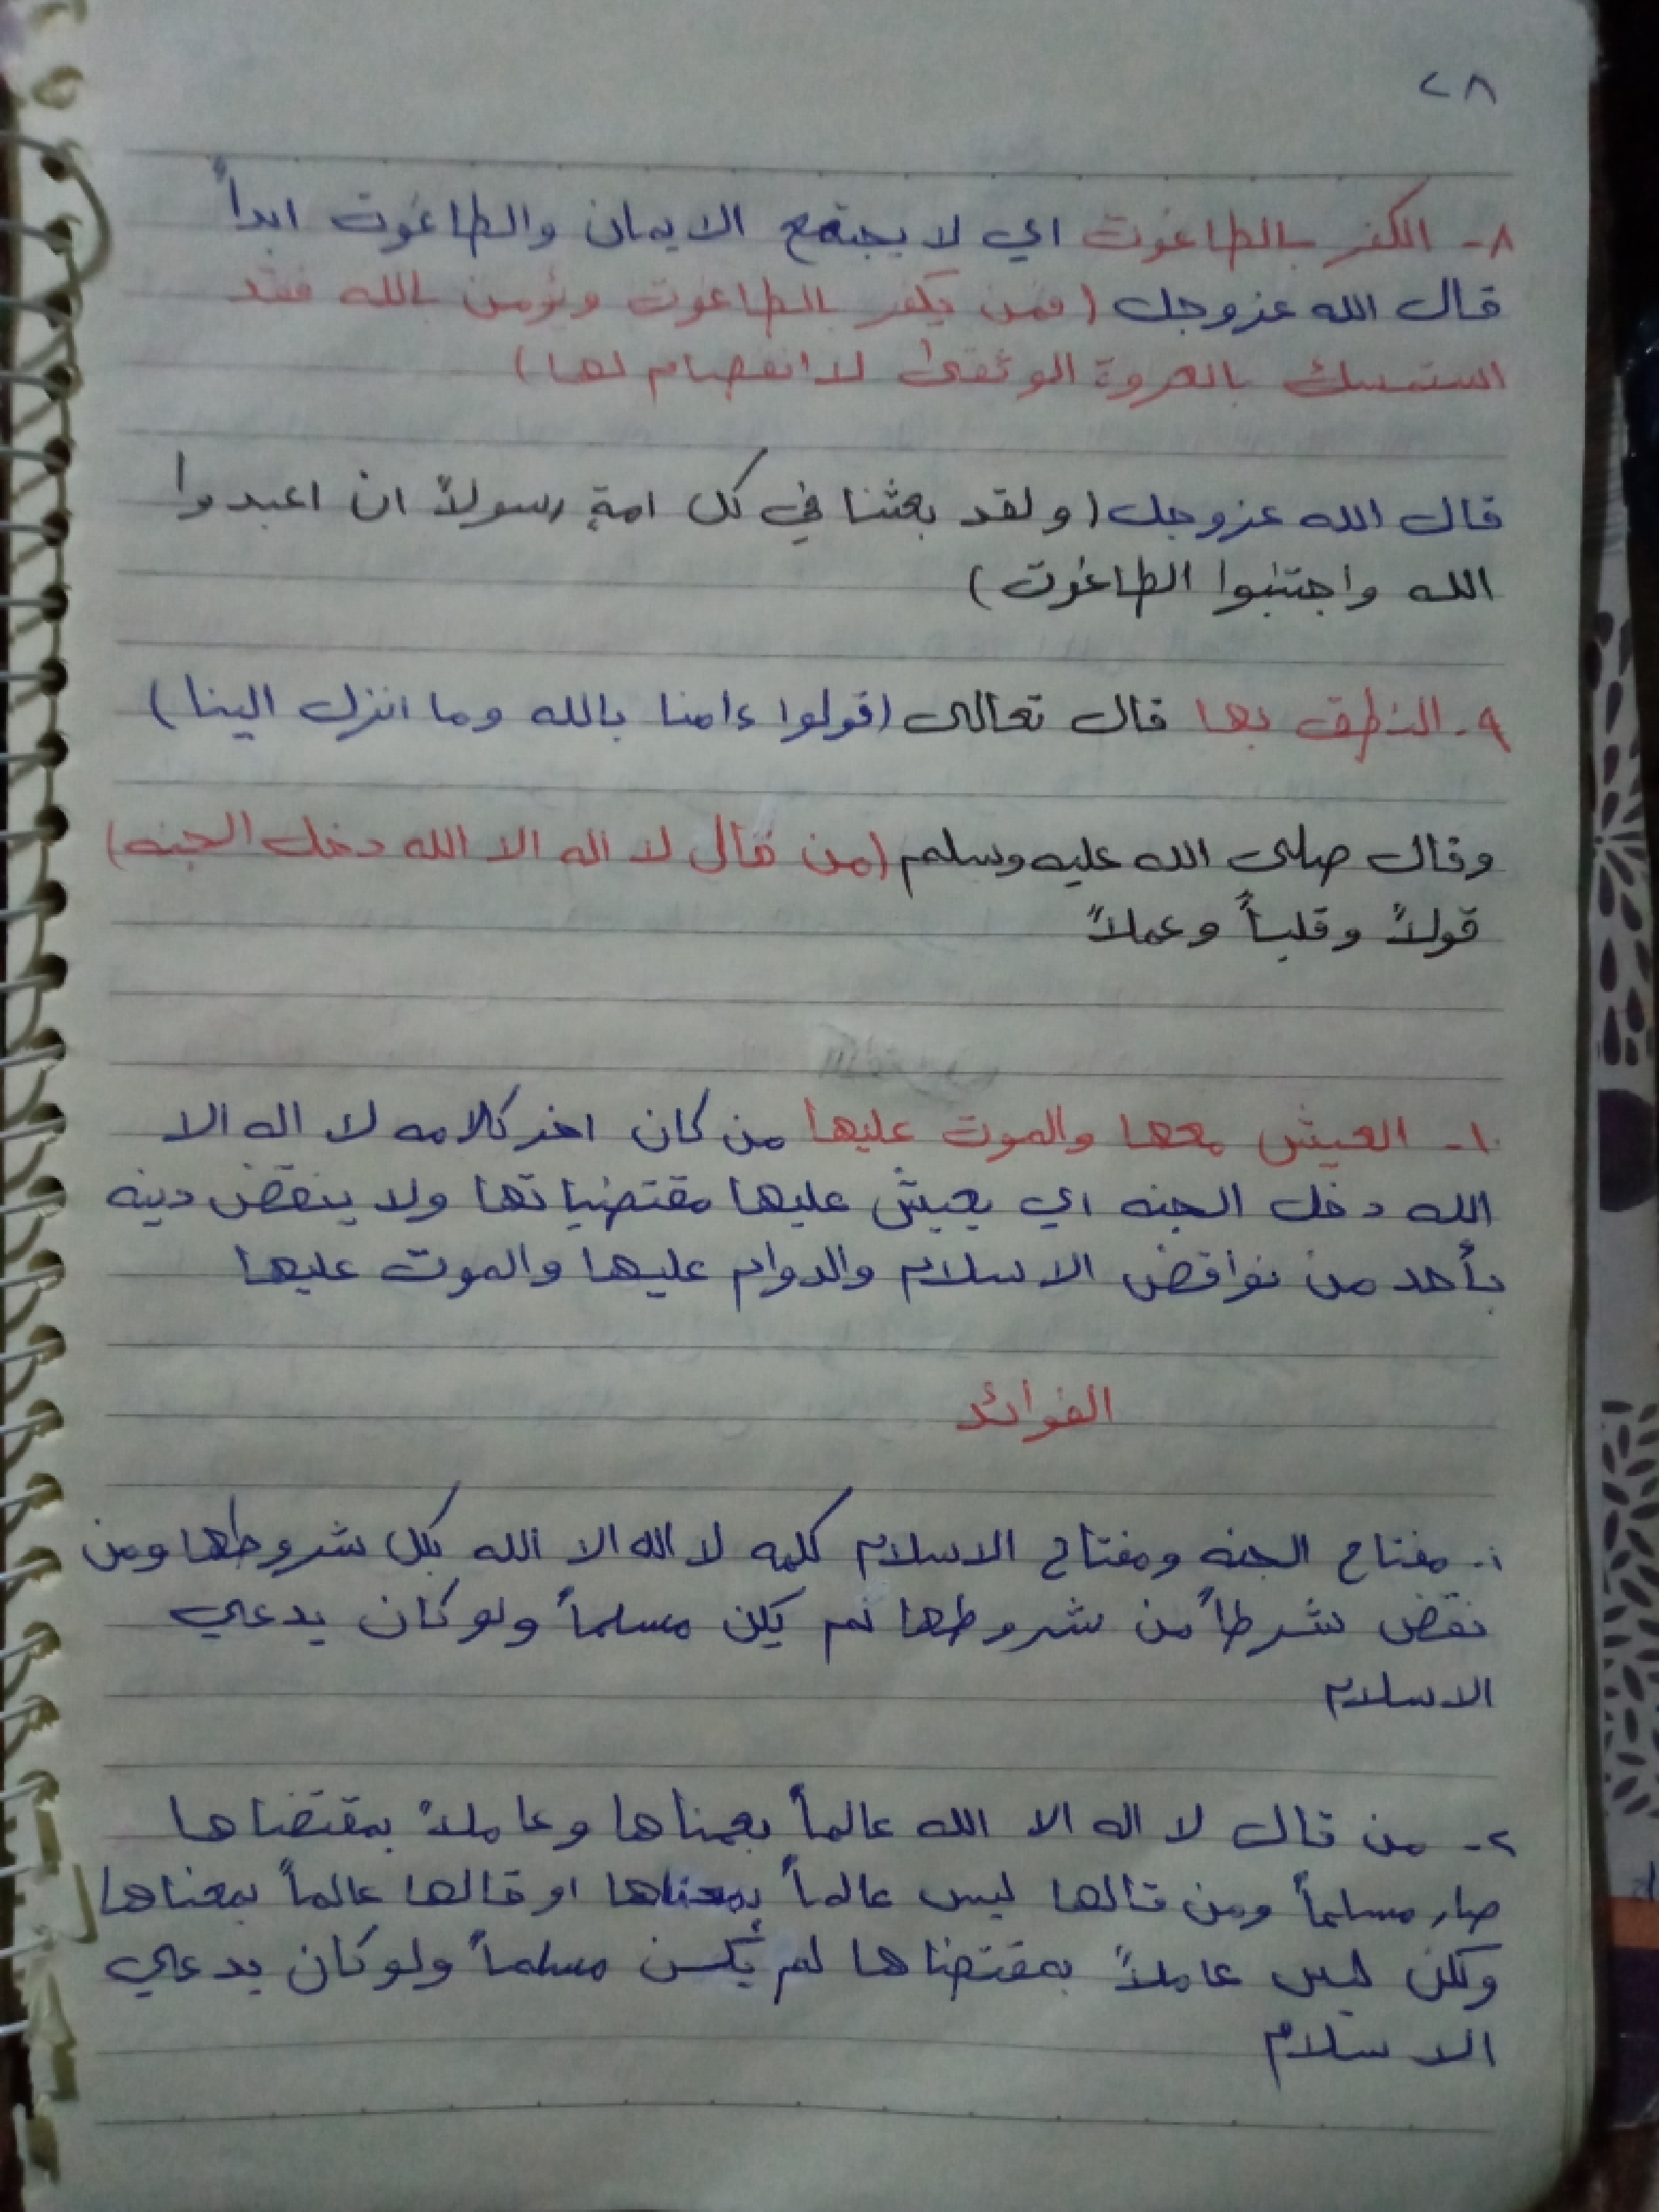 ٢٨
٨- الكفر بالطاغوت اي لا يجتمع الايمان والطاغوت ابداً
قال الله عزوجل (فمن يكفر بالطاغوت ويؤمن بالله فقد
استمسك بالعروة الوثقى لا انفصام لها)
قال الله عزوجل (ولقد بعثنا في كل امةٍ رسولاً ان اعبدوا
الله واجتنبوا الطاغوت)
٩- النطق بها قال تعالى (قولوا ءامنا بالله وما انزل الينا)
وقال صلى الله عليه وسلم (من قال لا اله الا الله دخل الجنه)
قولاً وقلباً وعملاً
١٠- العيش معها والموت عليها من كان اخر كلامه لا اله الا
الله دخل الجنه اي يعيش عليها مقتضياتها ولا ينقض دينه
بأحد من نواقض الاسلام والدوام عليها والموت عليها
الفوائد
١- مفتاح الجنه ومفتاح الاسلام كلمه لا اله الا الله بكل شروطها ومن
نقض شرطاً من شروطها لم يكن مسلماً ولو كان يدعي
الاسلام
٢- من قال لا اله الا الله عالماً بمعناها وعاملاً بمقتضاها
صار مسلماً ومن قالها ليس عالماً بمعناها او قالها عالماً بمعناها
ولكن ليس عاملاً بمقتضاها لم يكن مسلماً ولو كان يدعي
الاسلام